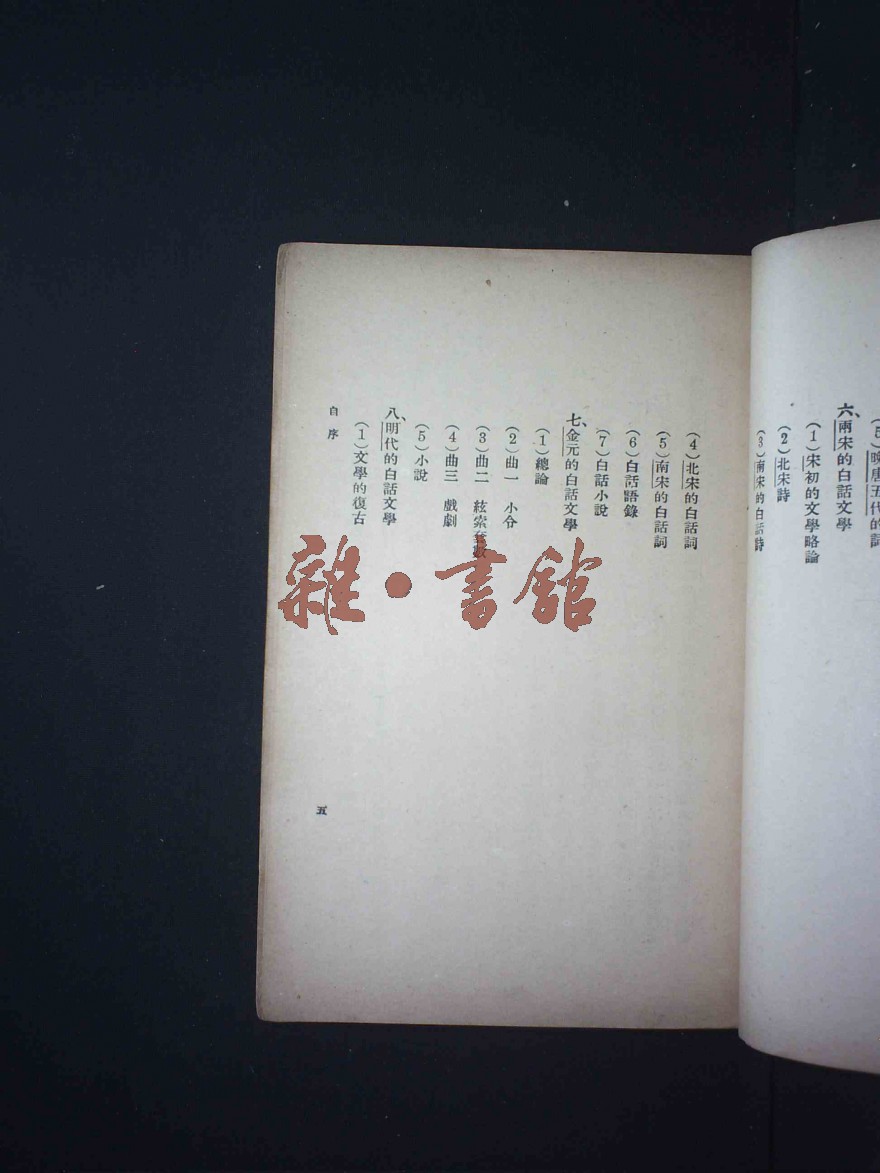 (5)晚唐五代的詞
六、兩宋的白話文學
(1)宋初的文學略論
(2)北宋詩
(3)南宋的白話詩
(4)北宋的白話詞
(5)南宋的白話詞
(6)白話語錄
(7)白話小說
七、金元的白話文學
(1)總論
(2)曲一 小令
(3)曲二 絃索套數
(4)曲三 戲劇
(5)小說
八、明代的白話文學
(1)文學的復古
自序
五
雜·書館